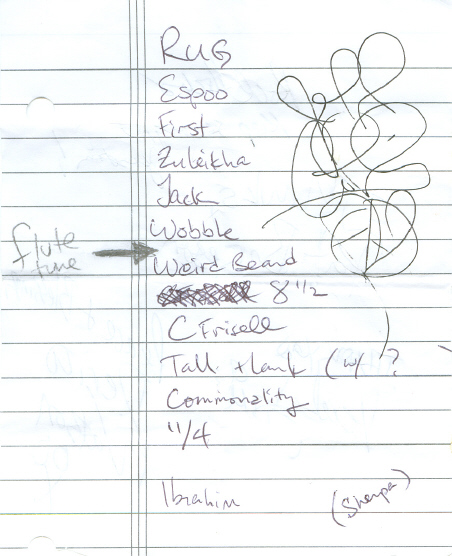 Rug
Espoo
First
Zuleikha
Jack
Wobble
flute tune → Weird Beard
8 1/2
C Frisell
Tall + Lank (w/ ?
Commonality
11/4
Ibrahim (Sherpa)